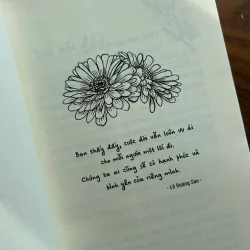 Bạn thấy đấy, cuộc đời vẫn luôn ưu ái
cho mỗi người một lối đi.
Chúng ta ai cũng sẽ có hạnh phúc và
tình yêu của riêng mình.
- Lê Hoàng Sao -